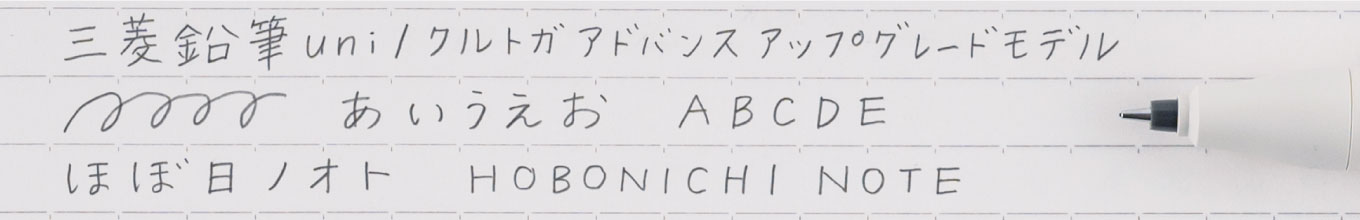 三菱鉛筆uni/クルトガ アドバンス アップグレードモデル
あいうえお ABCDE
ほぼ日ノオト HOBONICHI NOTE